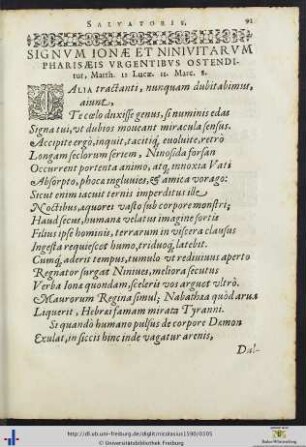 SALVATORIS, 91
SIGNVM IONÆ ET NINIVITARVM
PHARISÆIS VRGENTIBVS OSTENDI-
tur, Matth. 12 Lucæ. 11. Marc. 8.
TALIA tractanti, nunquam dubitabimus,
aiunt,
Te cœlo duxisse genus, si numinis edas
Signa tui, vt dubios moueant miracula sensus.
Accipite ergo, inquit, tacitiq; euoluite, retrò
Longam seclorum seriem, Ninosida forsan
Occurrent portenta animo, atq; innoxia Vati
Absorpto, phoca ingluuies, & amica vorago:
Sicut enim iacuit ternis imperditus ille
Noctibus, aquorei vasto sub corpore monstri;
Haud secus, humana velatus imagine sortis
Filius ipse hominis, terrarum in viscera clausus
Ingesta requiescet humo, triduoq; latebit.
Cumq; aderit tempus, tumulo vt rediuiuus aperto
Regnator surgat Niniues, meliora secutus
Verba Iona quondam, sceleris vos arguet vltrò.
& Maurorum Regina simul; Nabathæa quòd arua
Liquerit, Hebræi famam mirata Tyranni.
Si quando humano pulsus de corpore Demon
Exulat, in siccis hinc inde vagatur arenis,
Dal-
http://dl.ub.uni-freiburg.de/diglit/nicolasius1590/0105
© Universitätsbibliothek Freiburg
Baden-Württemberg